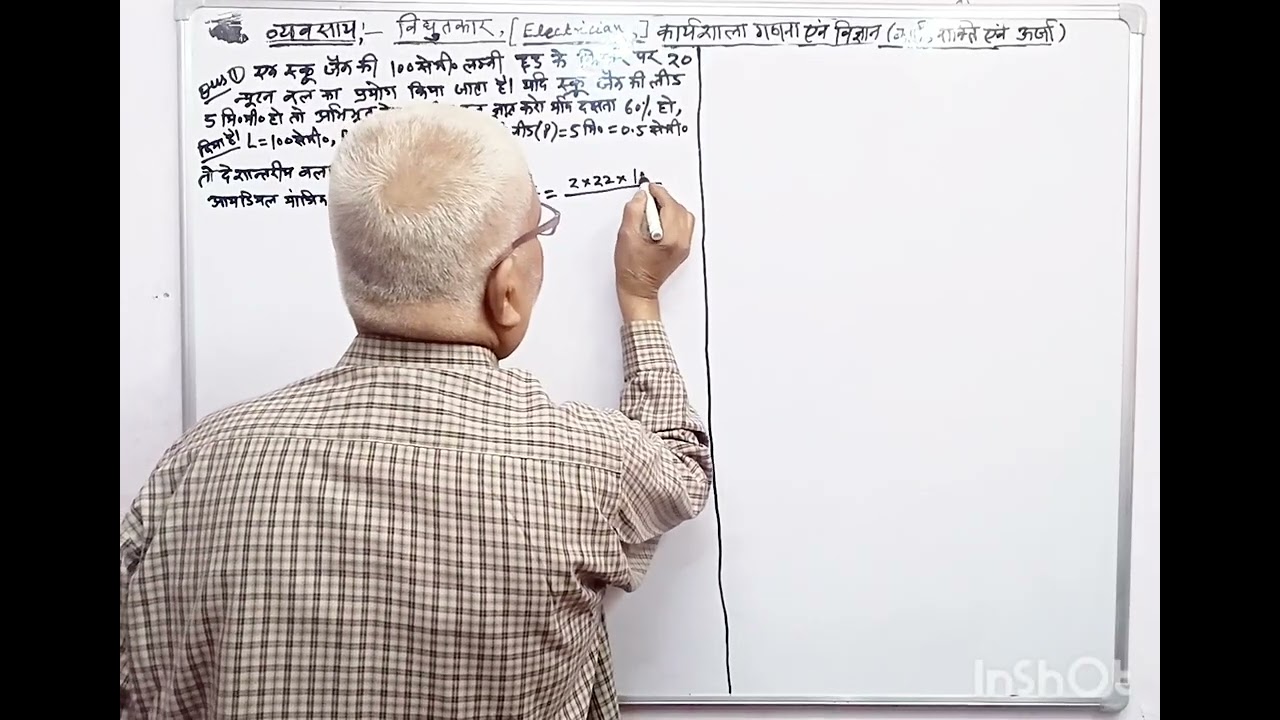 व्यवसाय:— विद्युतकार, [Electrician,] कार्यशाला गणना एवं विज्ञान (कार्य, शक्ति एवं ऊर्जा)
Ques ① एक स्क्रू जैक की 100 सेमी० लम्बी हैंड के पर 20
न्यूटन बल का प्रयोग किया जाता है। यदि स्क्रू जैक की लीड
5 मि०मी० हो तो ज्ञात करो यदि दक्षता 60% हो,
दिया है। L=100 सेमी०, लीड(P)=5 मि०=0.5 सेमी०
तो
आयडियल यांत्रिक = 2×22×1
InShO